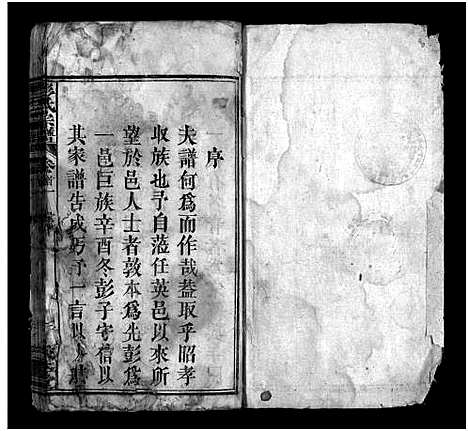 序
夫譜何爲而作哉蓋取乎昭孝
收族也予自蒞任英邑以來所
望於邑人士者敦本爲先彭爲
一邑巨族辛酉冬彭子守信以
其家譜告成丐予一言以
氏宗譜